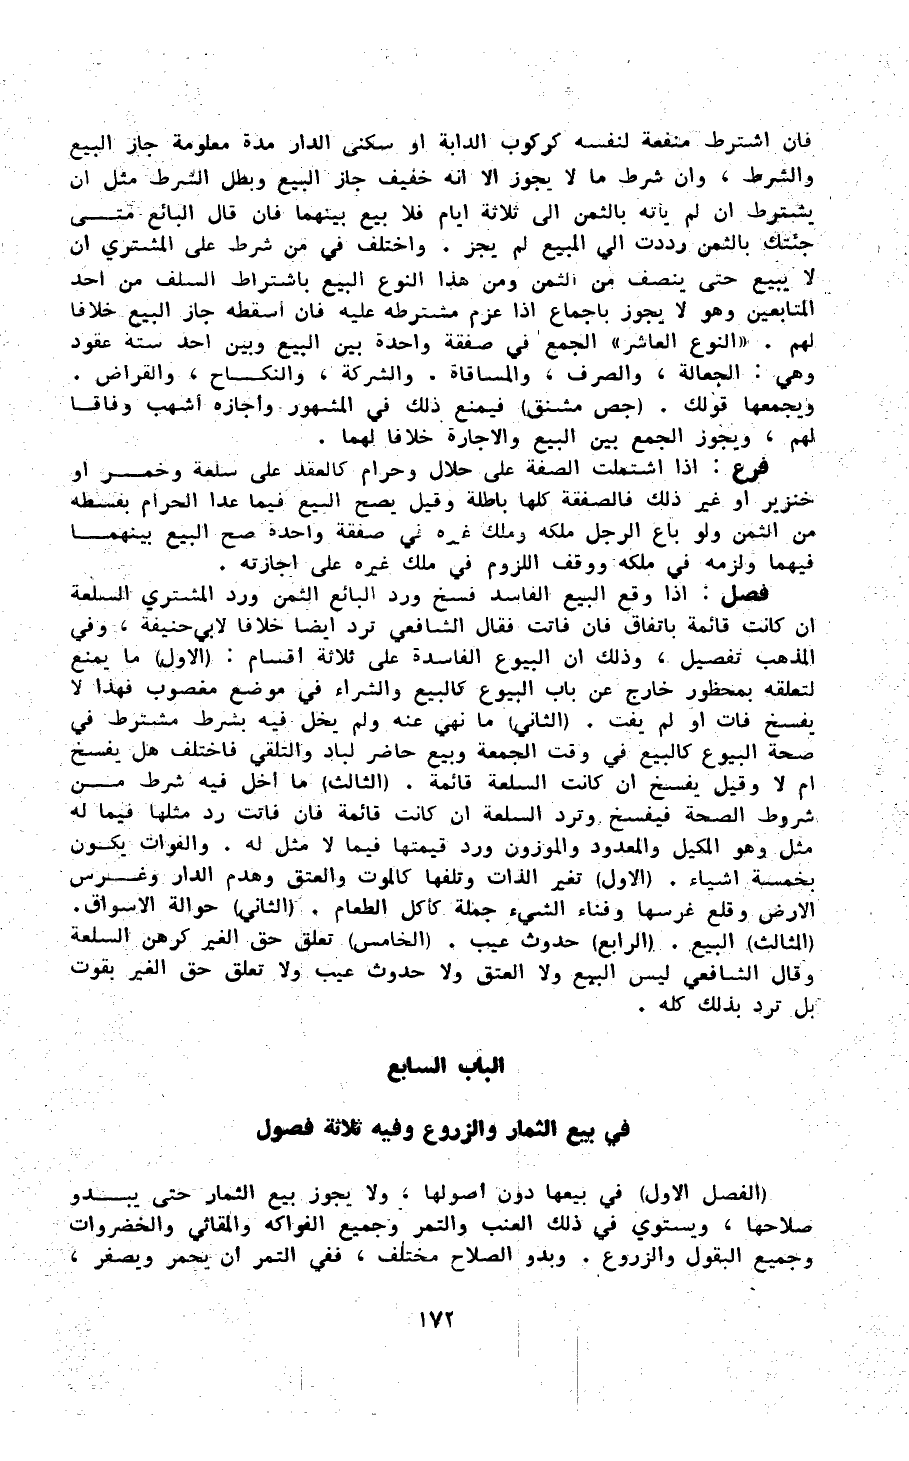 فان اشترط منفعة لنفسه كركوب الدابة او سكنى الدار مدة معلومة جاز البيع
والشرط ، وان شرط ما لا يجوز الا انه خفيف جاز البيع وبطل الشرط مثل ان
يشترط ان لم يأته بالثمن الى ثلاثة ايام فلا بيع بينهما فان قال البائع متـــى
جئتك بالثمن رددت الي المبيع لم يجز . واختلف في من شرط على المشتري ان
لا يبيع حتى ينصف من الثمن ومن هذا النوع البيع باشتراط السلف من احد
المتابعين وهو لا يجوز باجماع اذا عزم مشترطه عليه فان أسقطه جاز البيع خلافا
لهم . «النوع العاشر» الجمع في صفقة واحدة بين البيع وبين احد ستة عقود
وهي : الجعالة ، والصرف ، والمساقاة . والشركة ، والنكـــاح ، والقراض .
ويجمعها قولك . (جص مشنق) فيمنع ذلك في المشهور وأجازه أشهب وفاقـا
لهم ، ويجوز الجمع بين البيع والاجارة خلافا لهما .
فرع : اذا اشتملت الصفة على حلال وحرام كالعقد على سلعة وخمـــر او
خنزير او غير ذلك فالصفقة كلها باطلة وقيل يصح البيع فيما عدا الحرام بقسطه
من الثمن ولو باع الرجل ملكه وملك غيره في صفقة واحدة صح البيع بينهمـــا
فيهما ولزمه في ملكه ووقف اللزوم في ملك غيره على اجازته .
فصل : اذا وقع البيع الفاسد فسخ ورد البائع الثمن ورد المشتري السلعة
ان كانت قائمة باتفاق فان فاتت فقال الشافعي ترد ايضا خلافا لابي حنيفة ، وفي
المذهب تفصيل ، وذلك ان البيوع الفاسدة على ثلاثة أقسام : (الاول) ما يمنع
لتعلقه بمحظور خارج عن باب البيوع كالبيع والشراء في موضع مغصوب فهذا لا
يفسخ فات او لم يفت . (الثاني) ما نهي عنه ولم يخل فيه بشرط مشترط في
صحة البيوع كالبيع في وقت الجمعة وبيع حاضر لباد والتلقي فاختلف هل يفسخ
ام لا وقيل يفسخ ان كانت السلعة قائمة . (الثالث) ما أخل فيه شرط مـــن
شروط الصحة فيفسخ وترد السلعة ان كانت قائمة فان فاتت رد مثلها فيما له
مثل وهو المكيل والمعدود والموزون ورد قيمتها فيما لا مثل له . والفوات يكـون
بخمسة اشياء . (الاول) تغير الذات وتلفها كالموت والعتق وهدم الدار وغـــرس
الارض وقلع غرسها وفناء الشيء جملة كأكل الطعام . (الثاني) حوالة الاسواق.
(الثالث) البيع . (الرابع) حدوث عيب . (الخامس) تعلق حق الغير كرهن السلعة
وقال الشافعي ليس البيع ولا العتق ولا حدوث عيب ولا تعلق حق الغير بقوت
بل ترد بذلك كله .
الباب السابع
في بيع الثمار والزروع وفيه ثلاثة فصول
(الفصل الاول) في بيعها دون أصولها ، ولا يجوز بيع الثمار حتى يبـــدو
صلاحها ، ويستوي في ذلك العنب والتمر وجميع الفواكه والمقاثي والخضروات
وجميع البقول والزروع . وبدو الصلاح مختلف ، ففي التمر أن يحمر ويصفر ،
١٧٢